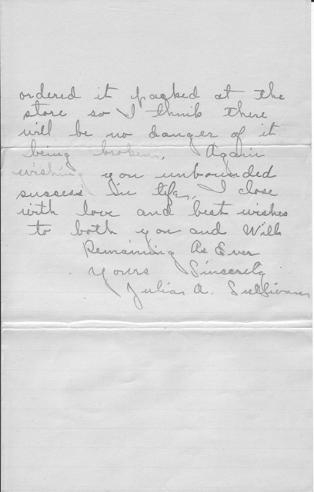 ordered it packed at the
store so I think there
will be no danger of it
being broken. Again
wishing you unbounded
success in life, I close
with love and best wishes
to both you and Will
Remaining As Ever
Yours Sincerely
Julian A. Sullivan